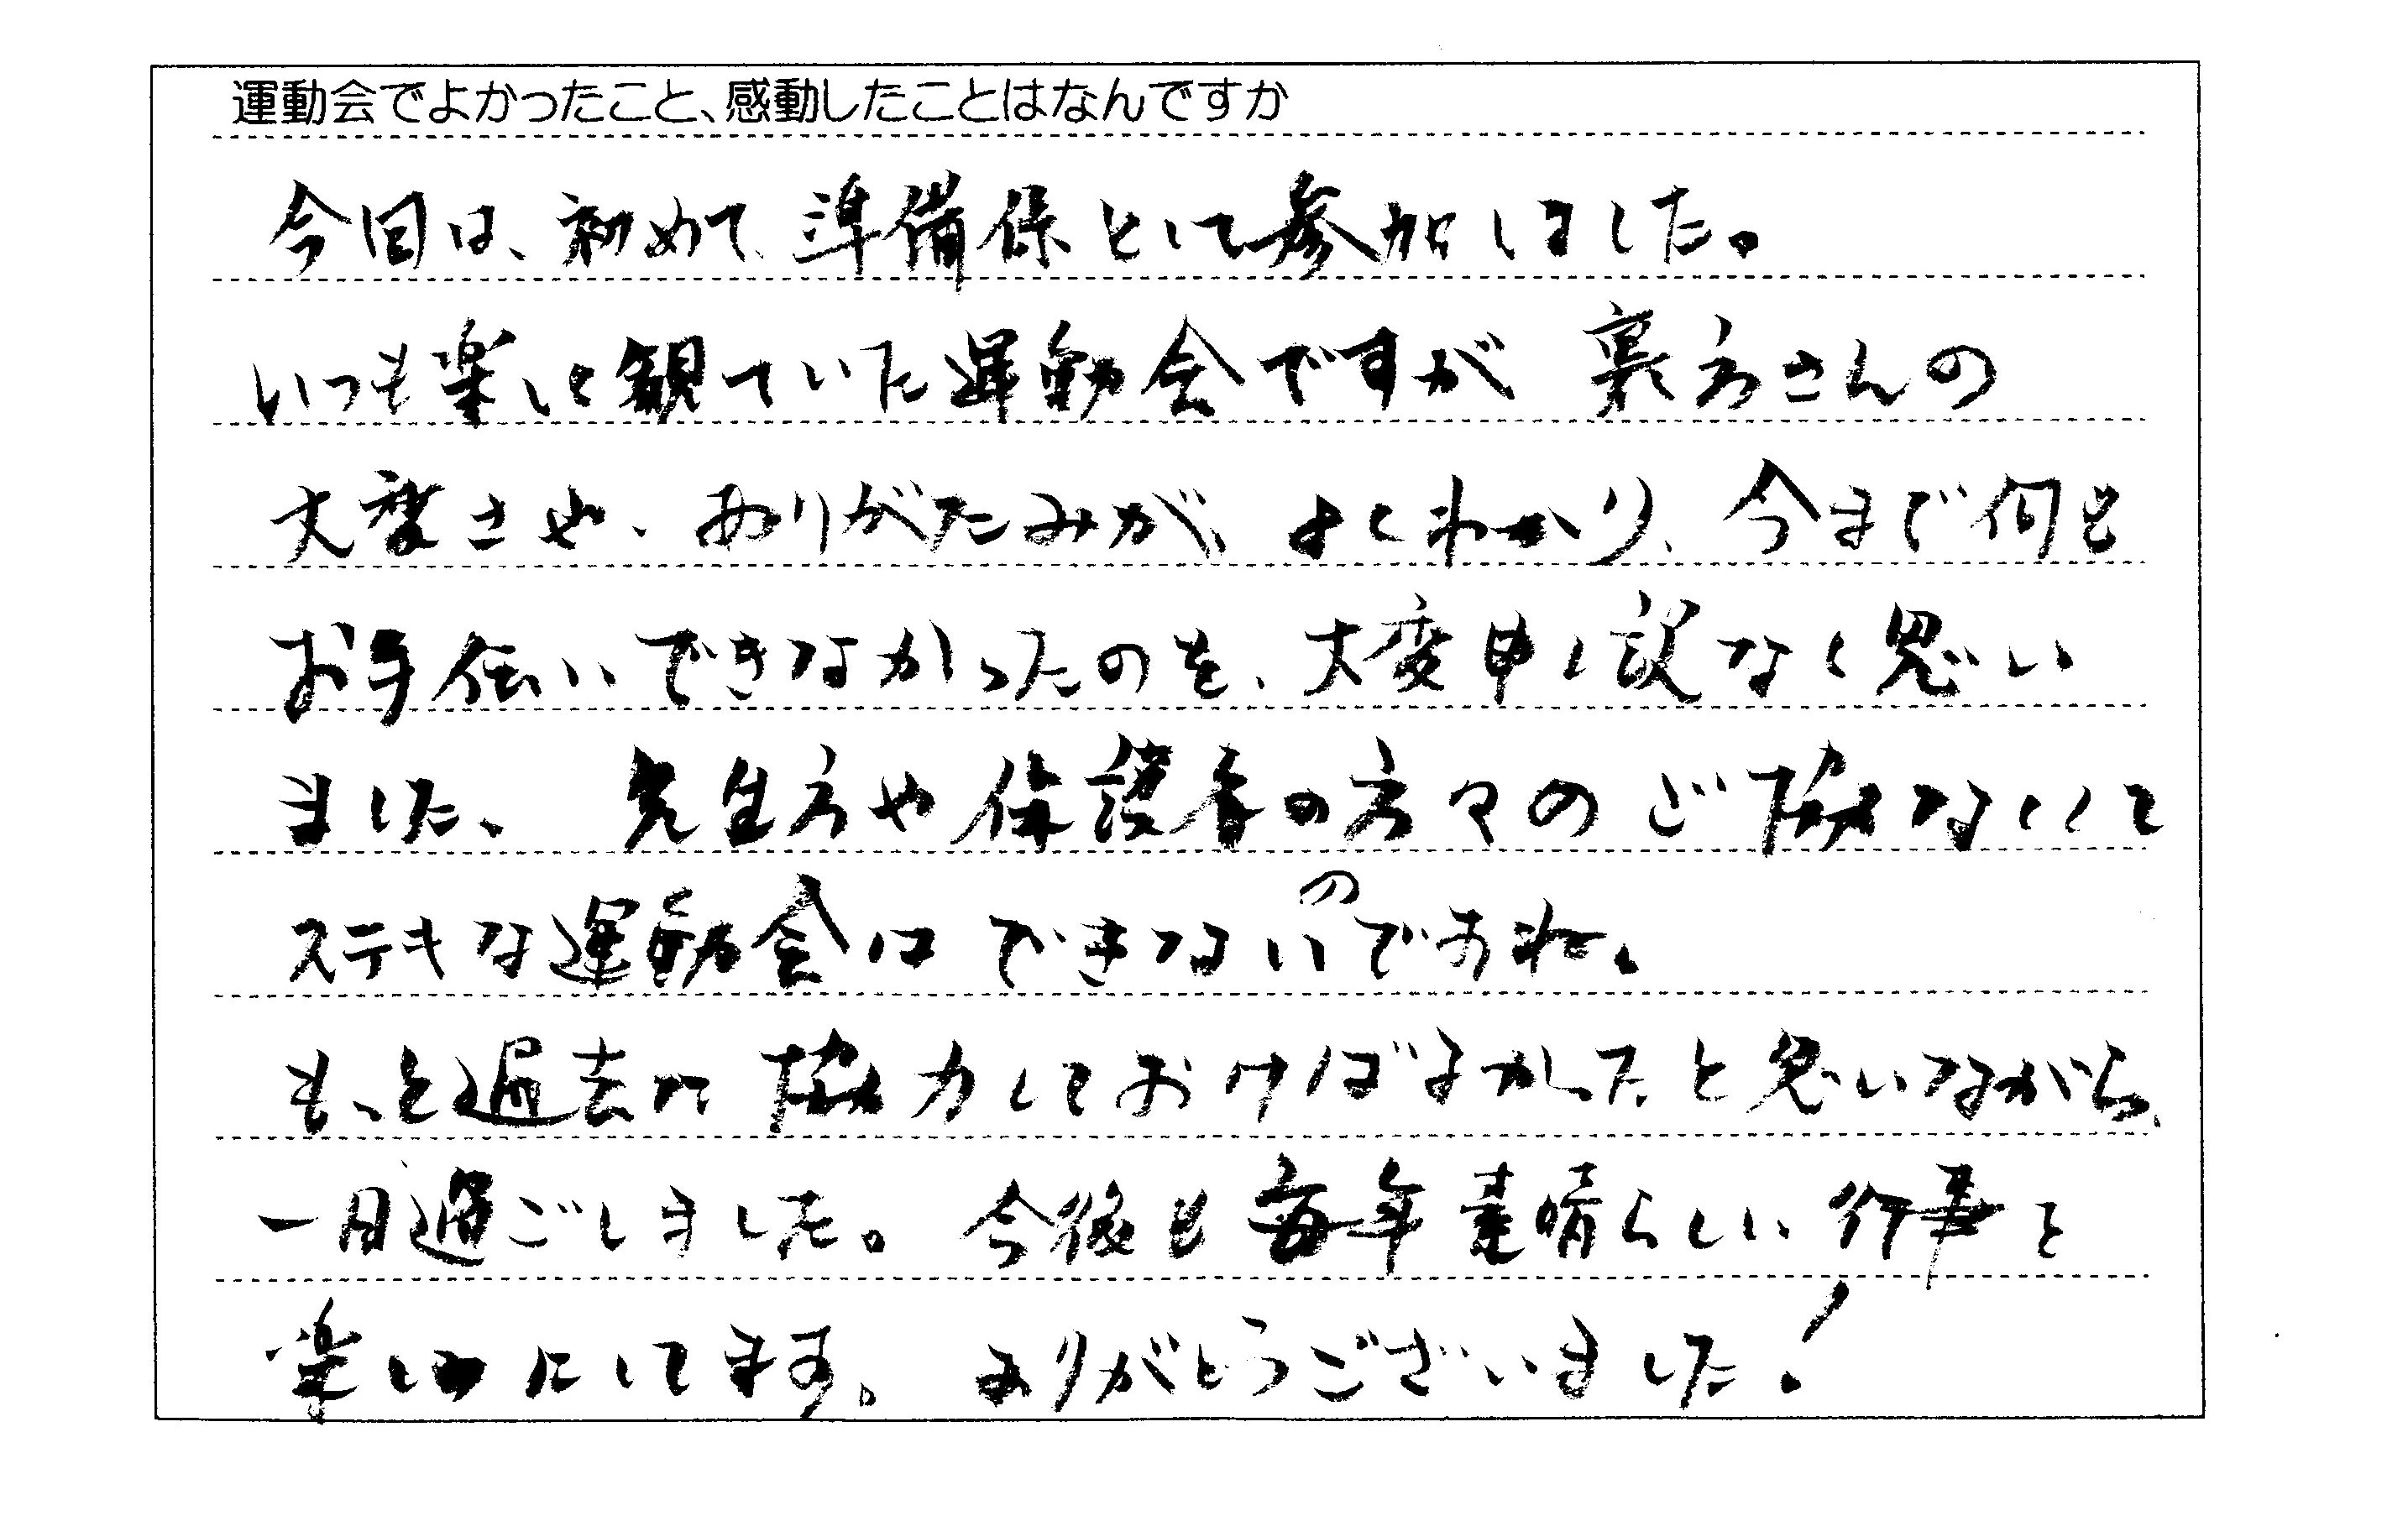 運動会でよかったこと、感動したことはなんですか
今回は、初めて、準備係として参加しました。
いつも楽しく観ていた運動会ですが 裏方さんの
大変さや、ありがたみが、よくわかり、今まで何も
お手伝いできなかったのを、大変申し訳なく思い
ました、先生方や保護者の方々のご協力なくして
ステキな運動会はできないのですね。
もっと過去に協力しておけばよかったと思いながら、
一日過ごしました。今後も毎年素晴らしい行事を
楽しみにしてます。ありがとうございました!